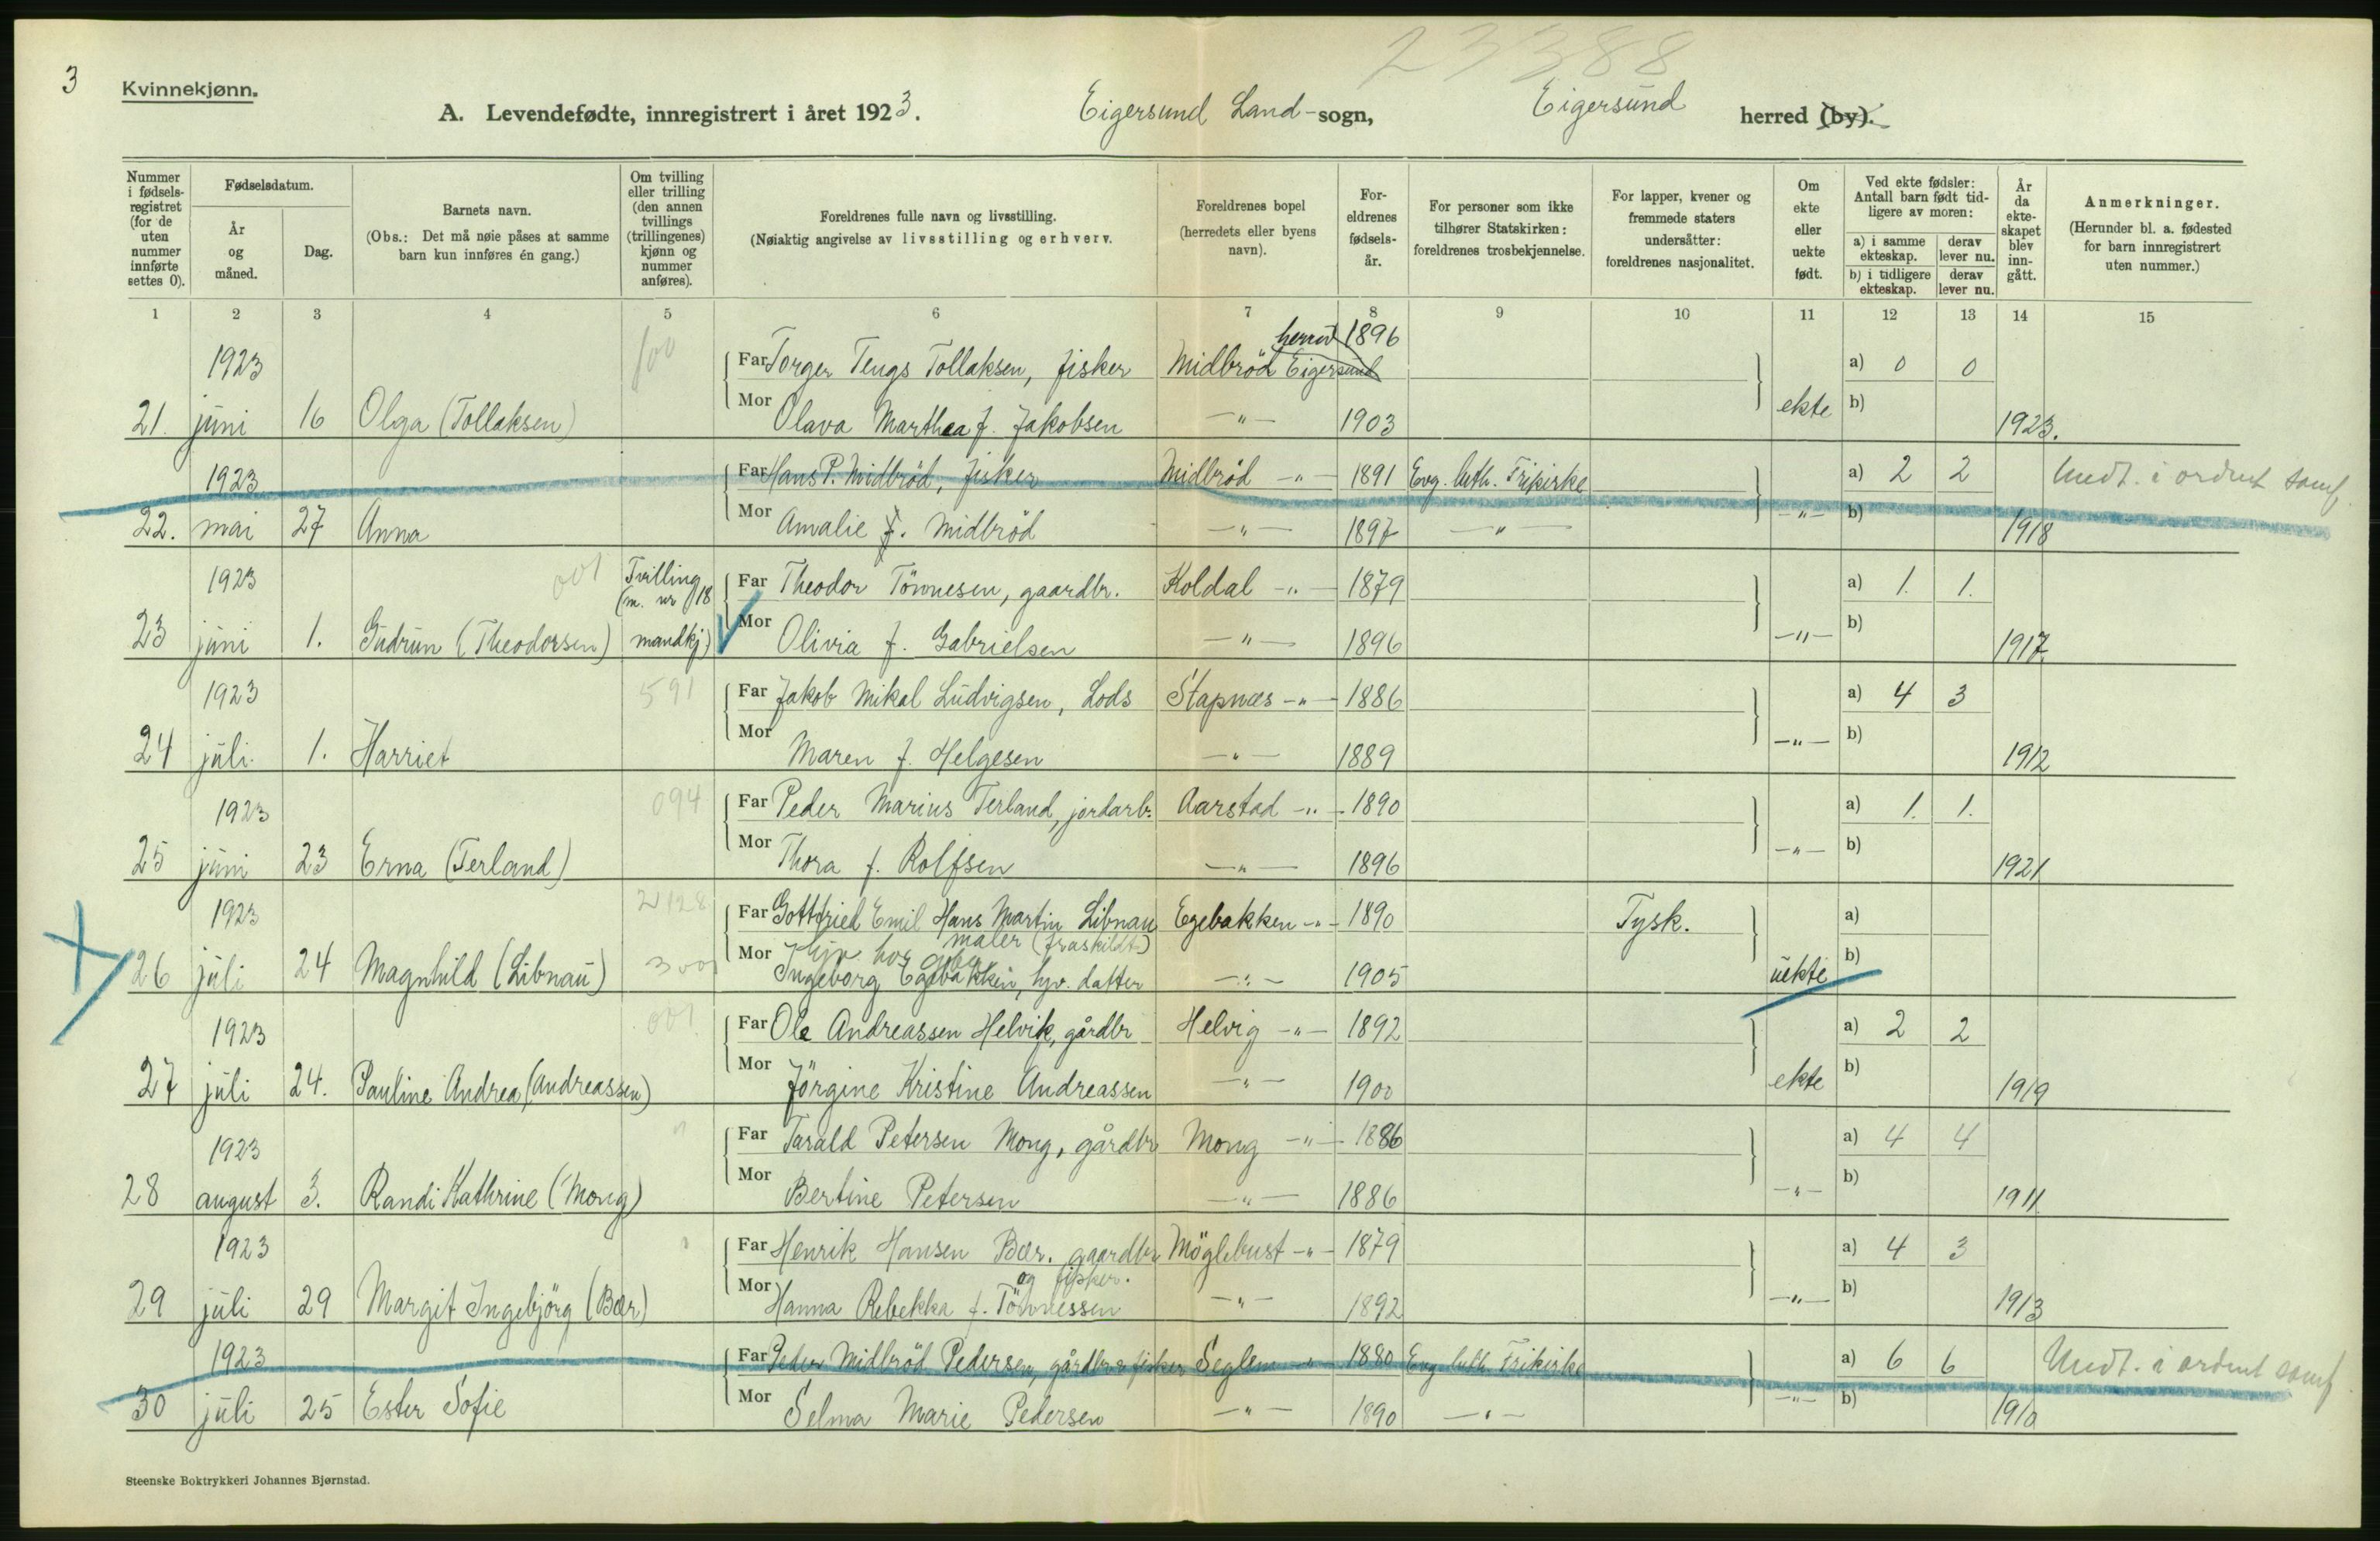 23388
3
Kvinnekjønn.
A. Levendefødte, innregistrert i året 1923. Eigersund Land-sogn, Eigersund herred (by).
Nummer i fødsels-registret (for de uten nummer innførte settes 0).
Fødselsdatum.
År og måned.
Dag.
Barnets navn.
(Obs.: Det må nøie påses at samme barn kun innføres én gang.)
Om tvilling eller trilling (den annen tvillings (trillingenes) kjønn og nummer anføres).
Foreldrenes fulle navn og livsstilling.
(Nøiaktig angivelse av livsstilling og erhverv.
Foreldrenes bopel (herredets eller byens navn).
For-eldrenes fødsels-år.
For personer som ikke tilhører Statskirken: foreldrenes trosbekjennelse.
For lapper, kvener og fremmede staters undersåtter: foreldrenes nasjonalitet.
Om ekte eller uekte født.
Ved ekte fødsler: Antall barn født tid-ligere av moren:
a) i samme ekteskap. derav lever nu.
b) i tidligere ekteskap. derav lever nu.
År da ekte-skapet blev inn-gått.
Anmerkninger.
(Herunder bl. a. fødested for barn innregistrert uten nummer.)
1 2 3 4 5 6 7 8 9 10 11 12 13 14 15
1923 100 Far Torger Tengs Tollaksen, fisker Midbröd Eigersund herred 1896 a) 0 0
21. juni 16 Olga (Tollaksen) Mor Olava Marthea f. Jakobsen -"- 1903 ekte b) 1923.
1923 Far Hans P. Midbröd, fisker Midbröd -"- 1891 Evg. luth. Frikirke a) 2 2 Undt. i ordnet samf.
22. mai 27 Anna Mor Amalie f. Midbröd -"- 1897 -"- -"- b) 1918
1923 001 Tvilling (m. nr 18 Far Theodor Tönnesen, gaardbr. Koldal -"- 1879 a) 1. 1.
23 juni 1. Gudrun (Theodorsen) mandkj) Mor Olivia f. Gabrielsen -"- 1896 -"- b) 1917
1923 591 Far Jakob Mikal Ludvigsen, Lods Stapnæs -"- 1886 a) 4 3
24 juli 1. Harriet Mor Maren f. Helgesen -"- 1889 -"- b) 1912
1923 094 Far Peder Marius Terland, jordarb. Aarstad -"- 1890 a) 1. 1.
25 juni 23 Erna (Terland) Mor Thora f. Rolfsen -"- 1896 -"- b) 1921
1923 Far Gottfried Emil Hans Martin Libnau Egebakken -"- 1890 Tysk. a)
maler (fraskildt)
hjv hos
26 juli 24 Magnhild (Libnau) 300 Mor Ingeborg Egebakken, hjv. datter -"- 1905 uekte b)
1923 001 Far Ole Andreassen Helvik, gårdbr Helvig -"- 1892 a) 2 2
27 juli 24. Pauline Andrea (Andreassen) Mor Jörgine Kristine Andreassen -"- 1900 ekte b) 1919
1923 " Far Tarald Petersen Mong, gårdbr Mong -"- 1886 a) 4 4
28 august 3. Randi Kathrine (Mong) Mor Bertine Petersen -"- 1886 -"- b) 1911
1923 Far Henrik Hansen Bær. gaardbr Möglebust -"- 1879 a) 4 3
og fisker.
29 juli 29 Margit Ingebjörg (Bær) Mor Hanna Rebekka f. Tönnessen -"- 1892 -"- b) 1913
1923 Far Peder Midbröd Pedersen, gårdbr o fisker Seglem -"- 1880 Evg luth. Frikirke a) 6 6 Undt. i ordnet samf
30 juli 25 Ester Sofie Mor Selma Marie Pedersen -"- 1890 -"- -"- b) 1910
Steenske Boktrykkeri Johannes Bjørnstad.